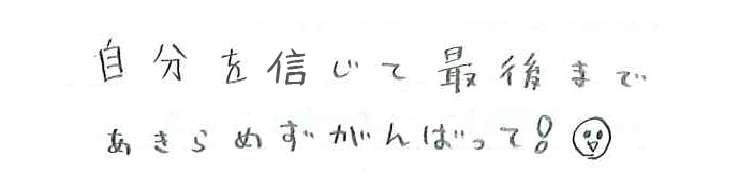 自分を信じて最後まで
あきらめずがんばって!